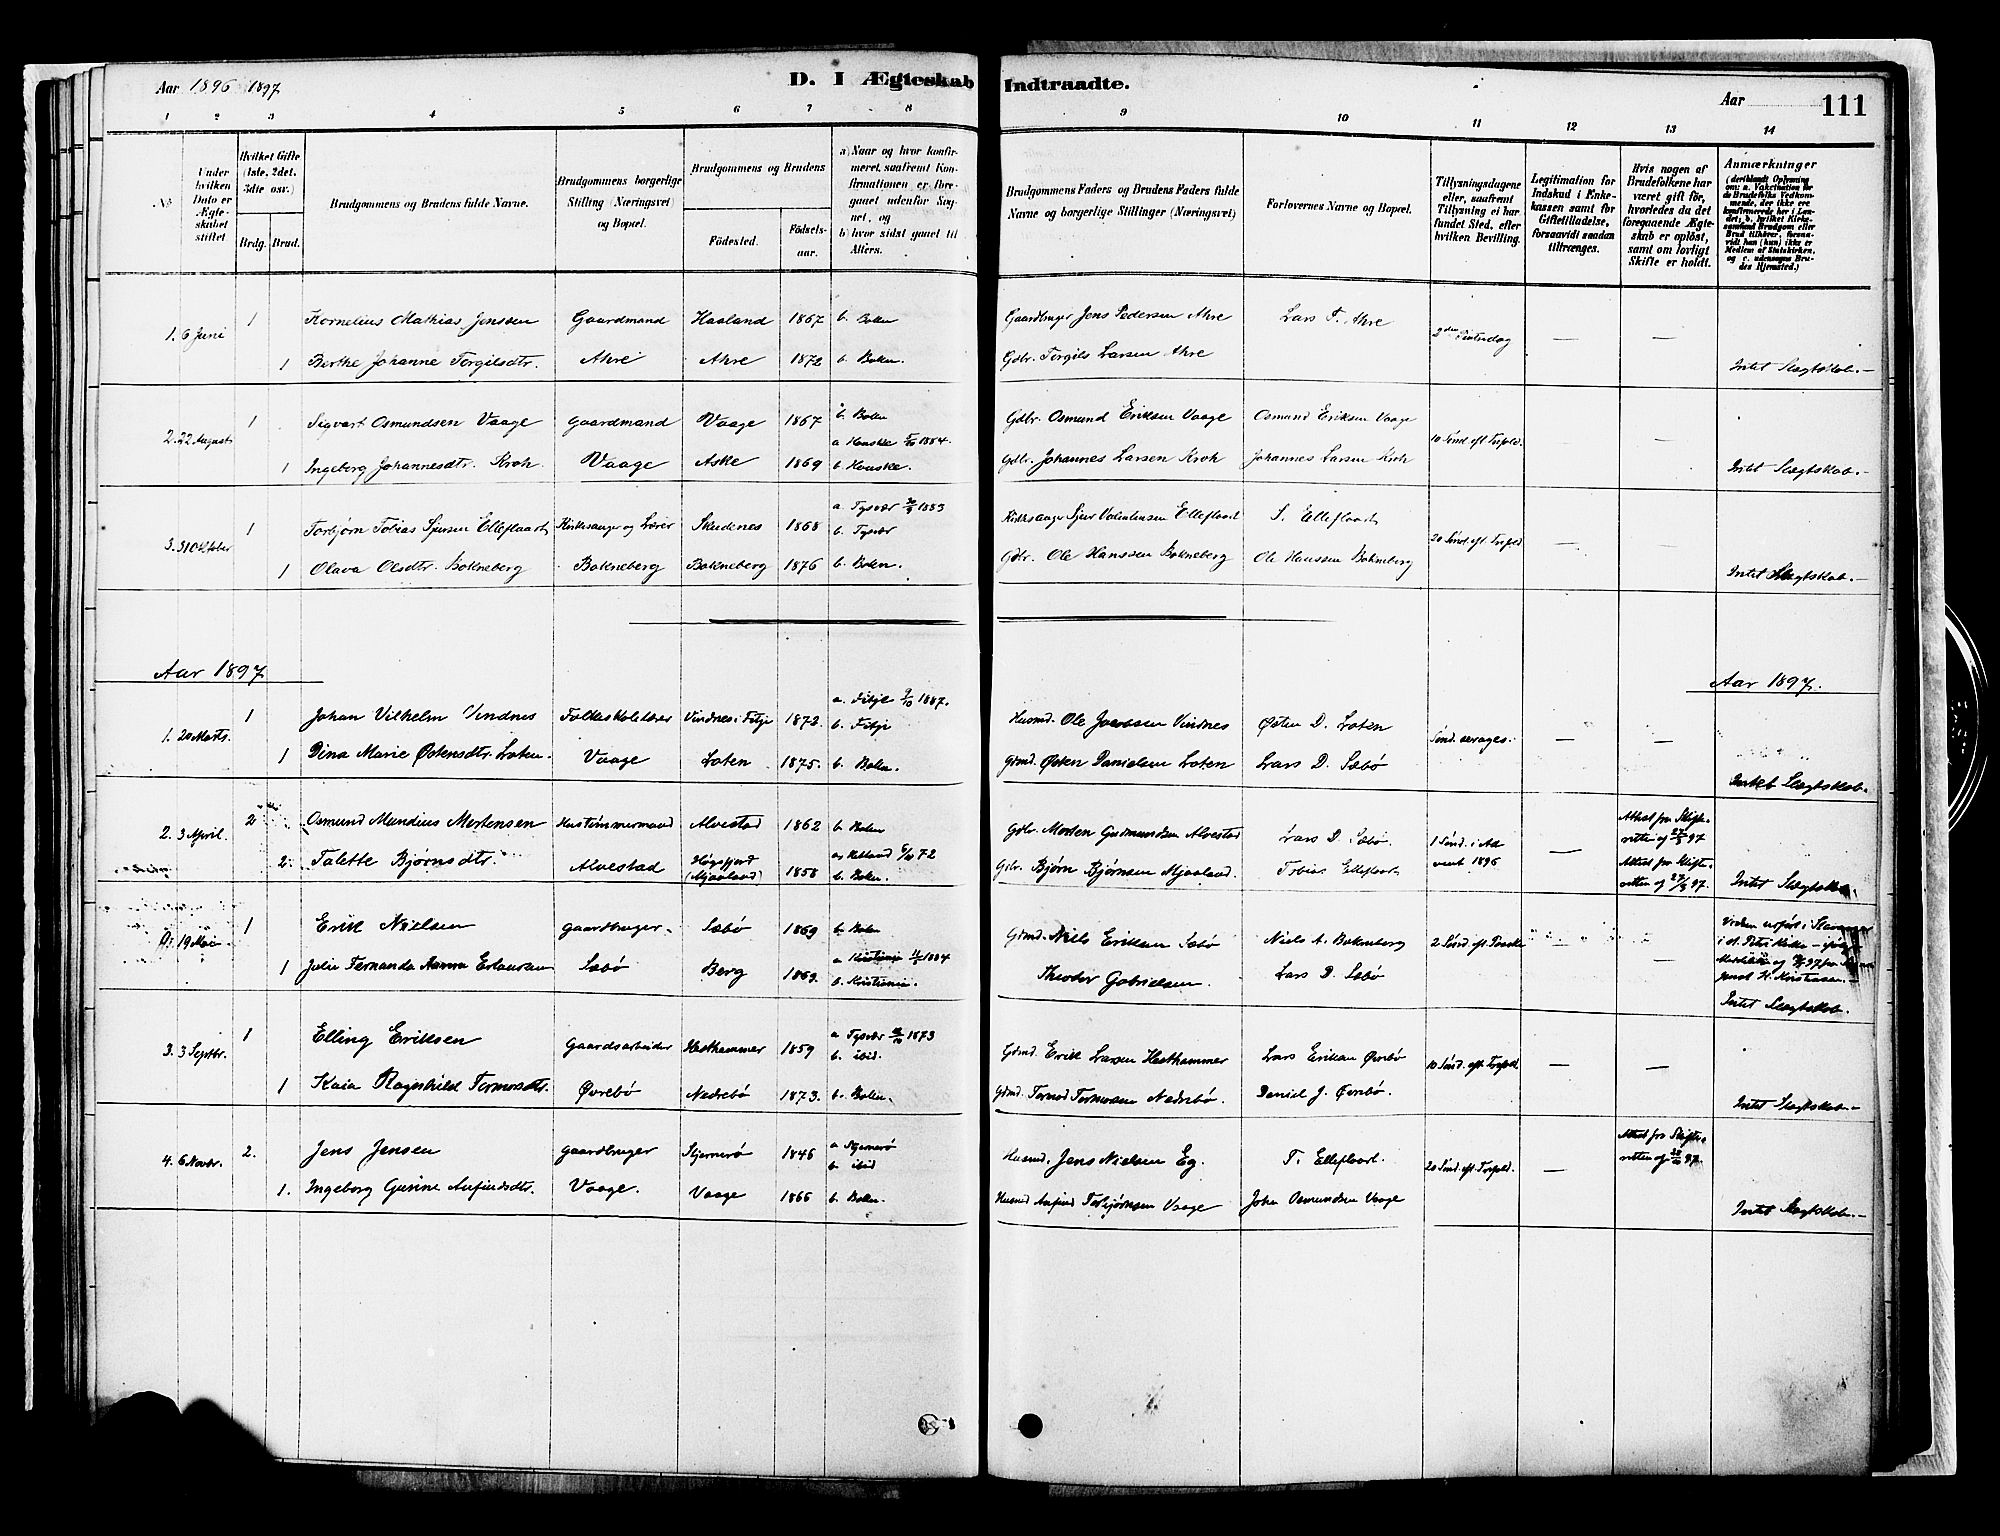 Aar 1896 1897
D. I Ægteskab Indtraadte.
Aar 111
1 2 3 4 5 6 7 8 9 10 11 12 13 14
No
Under hvilken Dato er Ægteskabet stiftet
Hvilket Gifte (1ste, 2det, 3die osv.)
Brdg. Brud.
Brudgommens og Brudens fulde Navne.
Brudgommens borgerlige Stilling (Næringsvei) og Bopæl.
Brudgommens og Brudens
Fødested.
Fødselsaar.
a) Naar og hvor konfirmeret, saafremt Konfirmationen er foregaaet udenfor Sognet, og
b) hvor sidst gaaet til Alters.
Brudgommens Faders og Brudens Faders fulde Navne og borgerlige Stillinger (Næringsvei)
Forlovernes Navne og Bopæl.
Tillysningsdagene eller, saafremt Tillysning ei har fundet Sted, efter hvilken Bevilling.
Legitimation for Indskud i Enkekassen samt for Giftetilladelse, forsaavidt saadan tiltrænges.
Hvis nogen af Brudefolkene har været gift før, hvorledes da det foregaaende Ægteskab er opløst, samt om lovligt Skifte er holdt.
Anmærkninger
(deriblandt Oplysning om: a. Vakcination for de Brudefolks Vedkommende, der ikke ere konfirmerede her i Landet; b. hvilket Kirkesamfund Brudgom eller Brud tilhører, forsaavidt han (hun) ikke er Medlem af Statskirken, og c. udensogns Brudes Hjemsted.)
1. 6 Juni 1 Kornelius Mathias Jenssen Gaardmand Haaland 1867 b. Bokn Gaardbruger Jens Pedersen Ahre Lars T. Ahre 2den Pintsedag — —
1 Berthe Johanne Torgilsdtr. Ahre Ahre 1872 b. Bokn. Gdbr. Torgils Larsen Ahre Intet Slægtskab. —
2. 22 August 1 Sigvart Osmundsen Vaage gaardmand Vaage 1867 b. Bokn Gdbr. Osmund Eriksen Vaage Osmund Eriksen Vaage 10 Sønd. eft. Trefold. —
1 Ingeborg Johannesdtr. Kroh. Vaage Aske 1869 a Houske 5/10 1884. b. Houske. Gdbr. Johannes Larsen Kroh Johannes Larsen Kroh Intet Slægtskab. —
3. 31 Oktober 1 Torbjørn Tobias Sjursen Elleflaadt Kirkesanger og Lærer Skudenes 1868 a. Tysvær 1883 b. Tysvær Kirkesanger Sjur Valentinsen Elleflaadt S. Elleflaadt 20 Sønd. eft. Trefold — —
1 Olava Olsdtr. Bokneberg Bokneberg Bokneberg 1876 b. Bokn. Gdbr. Ole Hanssen Bokneberg Ole Hanssen Bokneberg Intet Slægtskab. —
Aar 1897 Aar 1897.
1. 20 Marts. 1 Johan Vilhelm Vindnes Folkeskolelærer Vindnes i Fitje 1872. a. Fitje 9/10 1887. b. Fitje Husmd. Ole Jacobsen Vindnes Østen D. Loten — —
1 Dina Marie Østensdtr. Loten. Vaage Loten 1875. b. Bokn. Gdmd. Østen Danielsen Loten Lars D. Sæbø Intet Slægtskab.
2. 3 April. 2 Osmund Mundius Mortensen Hustømmermand Alvestad 1862 b. Bokn Gdbr. Morten Gudmundsen Alvestad Lars D. Sæbø. 1 Sønd. i Advent 1896 — Attest fra Skifteretten af 97
2. Talette Bjørnsdtr. Alvestad Høgsfjord (Mjaaland) 1858 72 b. Bokn. Gdbr. Bjørn Bjørnsen Mjaaland. Tobias Elleflaadt Attest fra Skifteretten af 27/3 97. Intet Slægtskab.
19 Mai 1 Erik Nielsen gaardbruger. Sæbø 1869 b. Bokn Gdmd. Niels Eriksen Sæbø Niels A. Bokneberg 2 Sønd. eft. Paaske —
1 Julie Fernanda Aanna Erlansen Sæbø Berg 1869. a Kristiania 1884 b. Kristiania. Theodor Gabrielsen. Lars D. Sæbø Vielsen udført i Stavanger i St. Petri Kirke
Intet Slægtskab.
3. 3 Septbr. 1 Elling Eriksen gaardsarbeider Hesthammer 1859 a Tysvær 1873 b. ibid Gdmd. Erik Larsen Hesthammer Lars Eriksen Øvrebø 10 Sønd. eft. Trefold — —
1 Kaia Ragnhild Tormodsdtr. Øvrebø Nedrebø 1873. b. Bokn. Gdmd. Tormod Tormodsen Nedrebø. Daniel J. Øvrebø. Intet Slægtskab. —
4. 6 Novbr. 2. Jens Jensen gaardbruger Stjernerø 1846 a Stjernerø b. ibid Husmd. Jens Nielsen Eg. T. Elleflaadt. 20 Sønd. eft. Trefold. — Attest fra Skifteretten af 97.
1. Ingeborg Gurine Anfindsdtr. Vaage. Vaage 1866 b. Bokn. Husmd Anfind Torbjørnsen Vaage John Osmundsen Vaage Intet Slægtskab. —